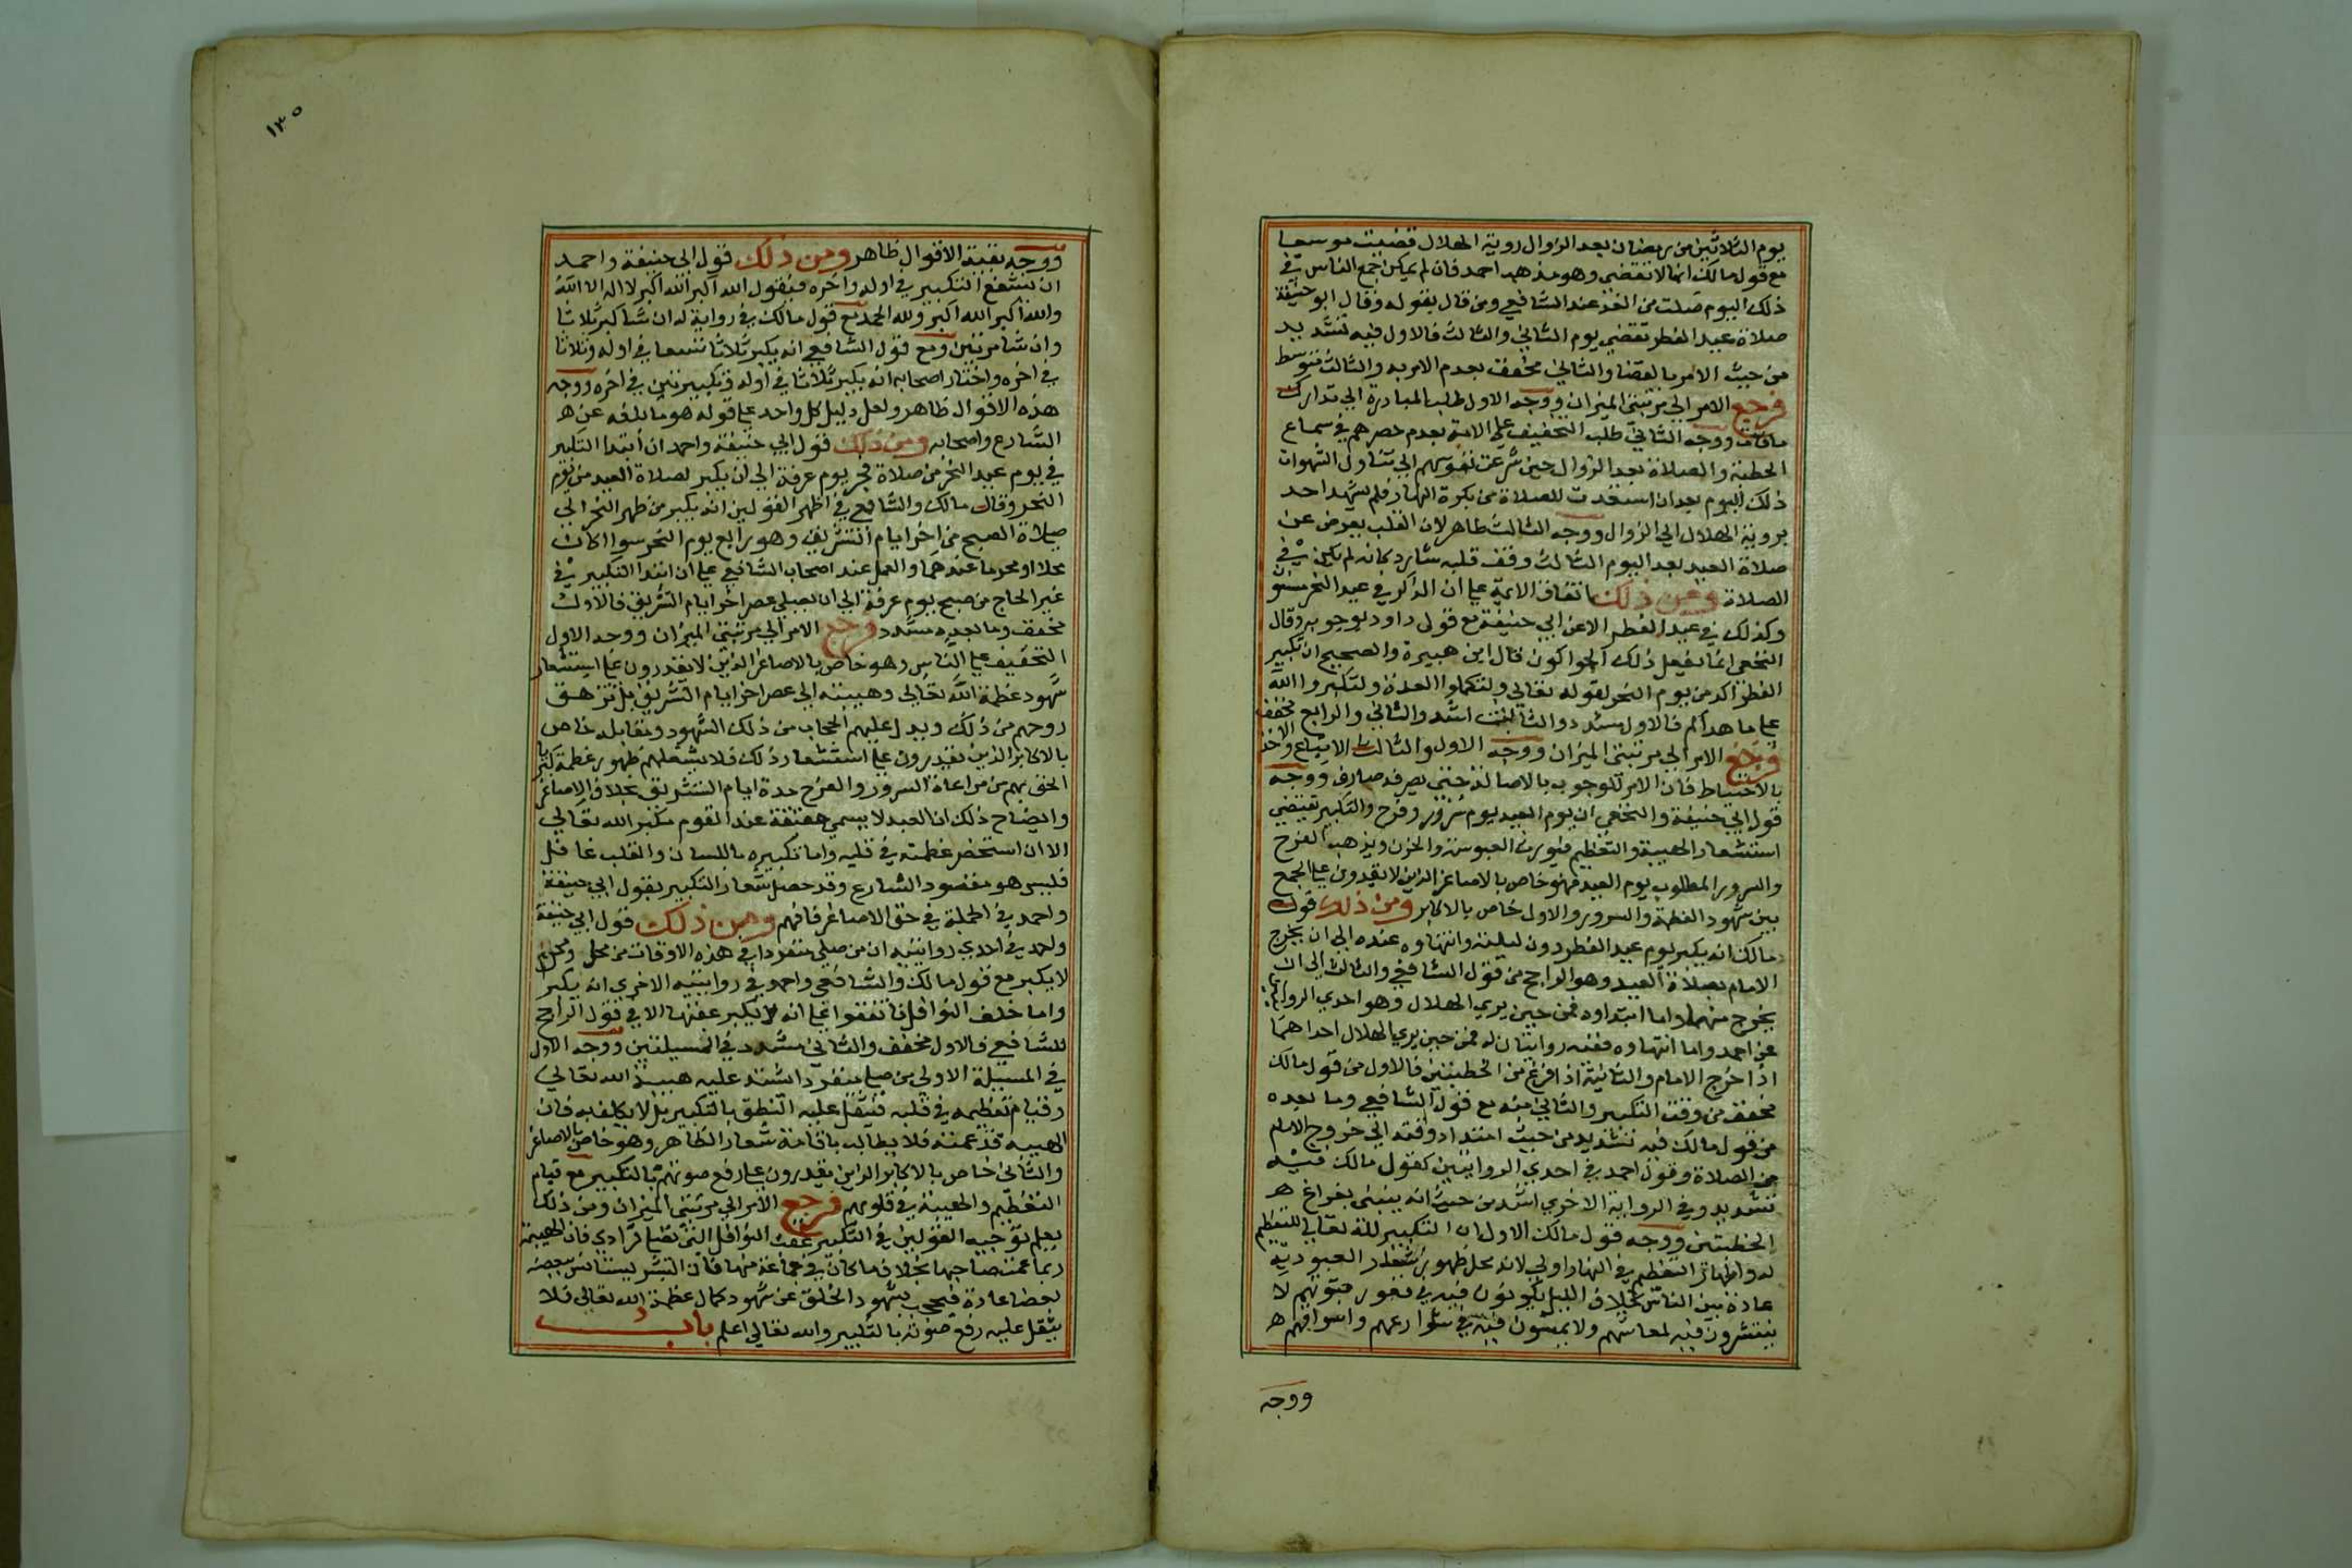 يوم الثلاثين من رمضان بعد الزوال روية الهلال قضيت موسعا
مع قول مالك انها لا تقضى وهو مذهب احمد فان لم يمكن جمع الناس في
ذلك اليوم صليت من الغد عند الشافعي ومن قال بقوله وقال ابو حنيفة
صلاة عيد الفطر تقضي يوم الثاني والثالث فالاول فيه تشديد
من حيث الامر بالقضا والثاني مخفف بعدم الامر به والثالث متوسط
فرجع الامر الي مرتبتي الميزان ووجه الاول طلب المبادرة الي تدارك
مافات ووجه الثاني طلب التخفيف علي الامة بعدم حصرهم في سماع
الخطبة والصلاة بعد الزوال حين شرعت نفوسهم الي تناول الشهوات
ذلك اليوم بعد ان استعدت للصلاة من بكرة النهار فلم يشهد احد
بروية الهلال الي الزوال ووجه الثالث ظاهر لان القلب يعرض عن
صلاة العيد بعد اليوم الثالث وقف قلبه شارد كانه لم يكن في
الصلاة ومن ذلك اتفاق الايمة علي ان الذكر في عيد النحر مسنون
وكذلك في عيد الفطر الا عن ابي حنيفة مع قول داود بوجوبه وقال
النخعي انما يفعل ذلك الحواكون قال ابن هبيرة والصحيح ان تكبير
الفطر اكد من يوم النحر لقوله تعالي ولتكملوا العدة ولتكبروا الله
علي ما هداكم فالاول مشدد والثالث اشد والثاني والرابع مخفف
فرجع الامر الي مرتبتي الميزان ووجه الاول والثالث الاتباع والاخذ
بالاحتياط فان الامر للوجوب بالاصالة حتي يصرفه صارف ووجه
قول ابي حنيفة والنخعي ان يوم العيد يوم سرور وفرح والتكبير يقتضي
استشعار الهيبة والتعظيم فيورث العبوسة والحزن ويذهب الفرح
والسرور المطلوب يوم العيد فهو خاص بالاصاغر الذين لا يقدرون علي الجمع
بين شهود العظمة والسرور والاول خاص بالاكابر ومن ذلك قول
مالك انه يكبر يوم عيد الفطر دون ليلته وانتهاوه عنده الي ان يخرج
الامام لصلاة العيد وهو الراجح من قول الشافعي والثالث الي ان
يخرج منها واما ابتداوه فمن حين يري الهلال وهو احدي الروايات
عن احمد واما انتهاوه ففيه روايتان له فمن حين يري الهلال احداهما
اذا خرج الامام والثانية اذا فرغ من الخطبتين فالاول من قول مالك
مخفف من وقت التكبير والثاني منه مع قول الشافعي وما بعده
من قول مالك فيه تشديد من حيث امتداد وقته الي خروج الامام
من الصلاة وقول احمد في احدي الروايتين كقول مالك فيه
تشديد وفي الرواية الاخري اشد من حيث انه ينتهي بفراغ ه
الخطبتين ووجه قول مالك الاول ان التكبير لله تعالي للتعظيم
له واظهار التعظيم في النهار اولي لانه محل ظهور شعار العبودية
عادة بين الناس بخلاف الليل يكونون فيه في قعور بيوتهم لا
ينتشرون فيه لمعاشهم ولا يمشون فيه في شوارعهم واسواقهم ه
ووجه
١٣٥
ووجه بقية الاقوال ظاهر ومن ذلك قول ابي حنيفة واحمد
ان يشفع التكبير في اوله واخره فيقول الله اكبر الله اكبر لا اله الا الله
والله اكبر الله اكبر ولله الحمد مع قول مالك في رواية له ان شا كبر ثلاثا
وان شا مرتين ومع قول الشافعي انه يكبر ثلاثا نسقا في اوله وثلاثا
في اخره واختار اصحابه انه يكبر ثلاثا في اوله وتكبيرتين في اخره ووجه
هذه الاقوال ظاهر ولعل دليل كل واحد علي قوله هو ما بلغه عن ه
الشارع واصحابه ومن ذلك قول ابي حنيفة واحمد ان ابتدا التكبير
في يوم عيد النحر من صلاة فجر يوم عرفة الي ان يكبر لصلاة العيد من يوم
النحر وقال مالك والشافعي في اظهر القولين انه يكبر من ظهر النحر الي
صلاة الصبح من اخر ايام التشريق وهو رابع يوم النحر سوا اكان
محلا او محرما عندهما والعمل عند اصحاب الشافعي علي ان ابتدا التكبير في
غير الحاج من صبح يوم عرفة الي ان يصلي عصر اخر ايام التشريق فالاول
مخفف وما بعده مشدد فرجع الامر الي مرتبتي الميزان ووجه الاول
التخفيف علي الناس وهو خاص بالاصاغر الذين لا يقدرون علي استشعار
شهود عظمة الله تعالي وهيبته الي عصر اخر ايام التشريق بل تزهق
روحهم من ذلك ويدل عليهم الحجاب من ذلك الشهود ومقابله خاص
بالاكابر الذين يقدرون علي استشعار ذلك فلا يشغلهم ظهور عظمة كبريا
الحق بهم من مراعاة السرور والفرح مدة ايام التشريق بخلاف الاصاغر
وايضاح ذلك ان العبد لا يسمي حقيقة عند القوم مكبر الله تعالي
الا ان استحضر عظمته في قلبه واما تكبيره باللسان والقلب غافل
فليس هو مقصود الشارع وقد حصل شعار التكبير بقول ابي حنيفة
واحمد في الجملة في حق الاصاغر فافهم ومن ذلك قول ابي حنيفة
واحمد في احدي روايتيه ان من صلي منفردا في هذه الاوقات من محل ومحرم
لا يكبر مع قول مالك والشافعي واحمد في روايتيه الاخري انه يكبر
واما خلف النوافل فاتفقوا علي انه لا يكبر عقبها الا في قول الراجح
للشافعي فالاول مخفف والثاني مشدد في المسيلتين ووجه الاول
في المسيلة الاولي من صلي منفردا اشتد عليه هيبة الله تعالي
وقيام تعظيمه في قلبه فيثقل عليه النطق بالتكبير بل لا يكلف به فان
الهيبه قد عمته فلا يطالب باقامة شعار الظاهر وهو خاص بالاصاغر
والثاني خاص بالاكابر الذين يقدرون علي رفع صوتهم بالتكبير مع قيام
التعظيم والهيبة في قلوبهم فرجع الامر الي مرتبتي الميزان ومن ذلك
يعلم توجيه القولين في التكبير عقب النوافل التي تصلي فرادي فان الهيبة
ربما عمت صاحبها بخلاف ما كان في جماعة منها فان البشر يستانس ببعضه
بعضا عادة فيحجب بشهود الخلق عن شهود كمال عظمة الله تعالي فلا
يثقل عليه رفع صوته بالتكبير والله تعالي اعلم باب